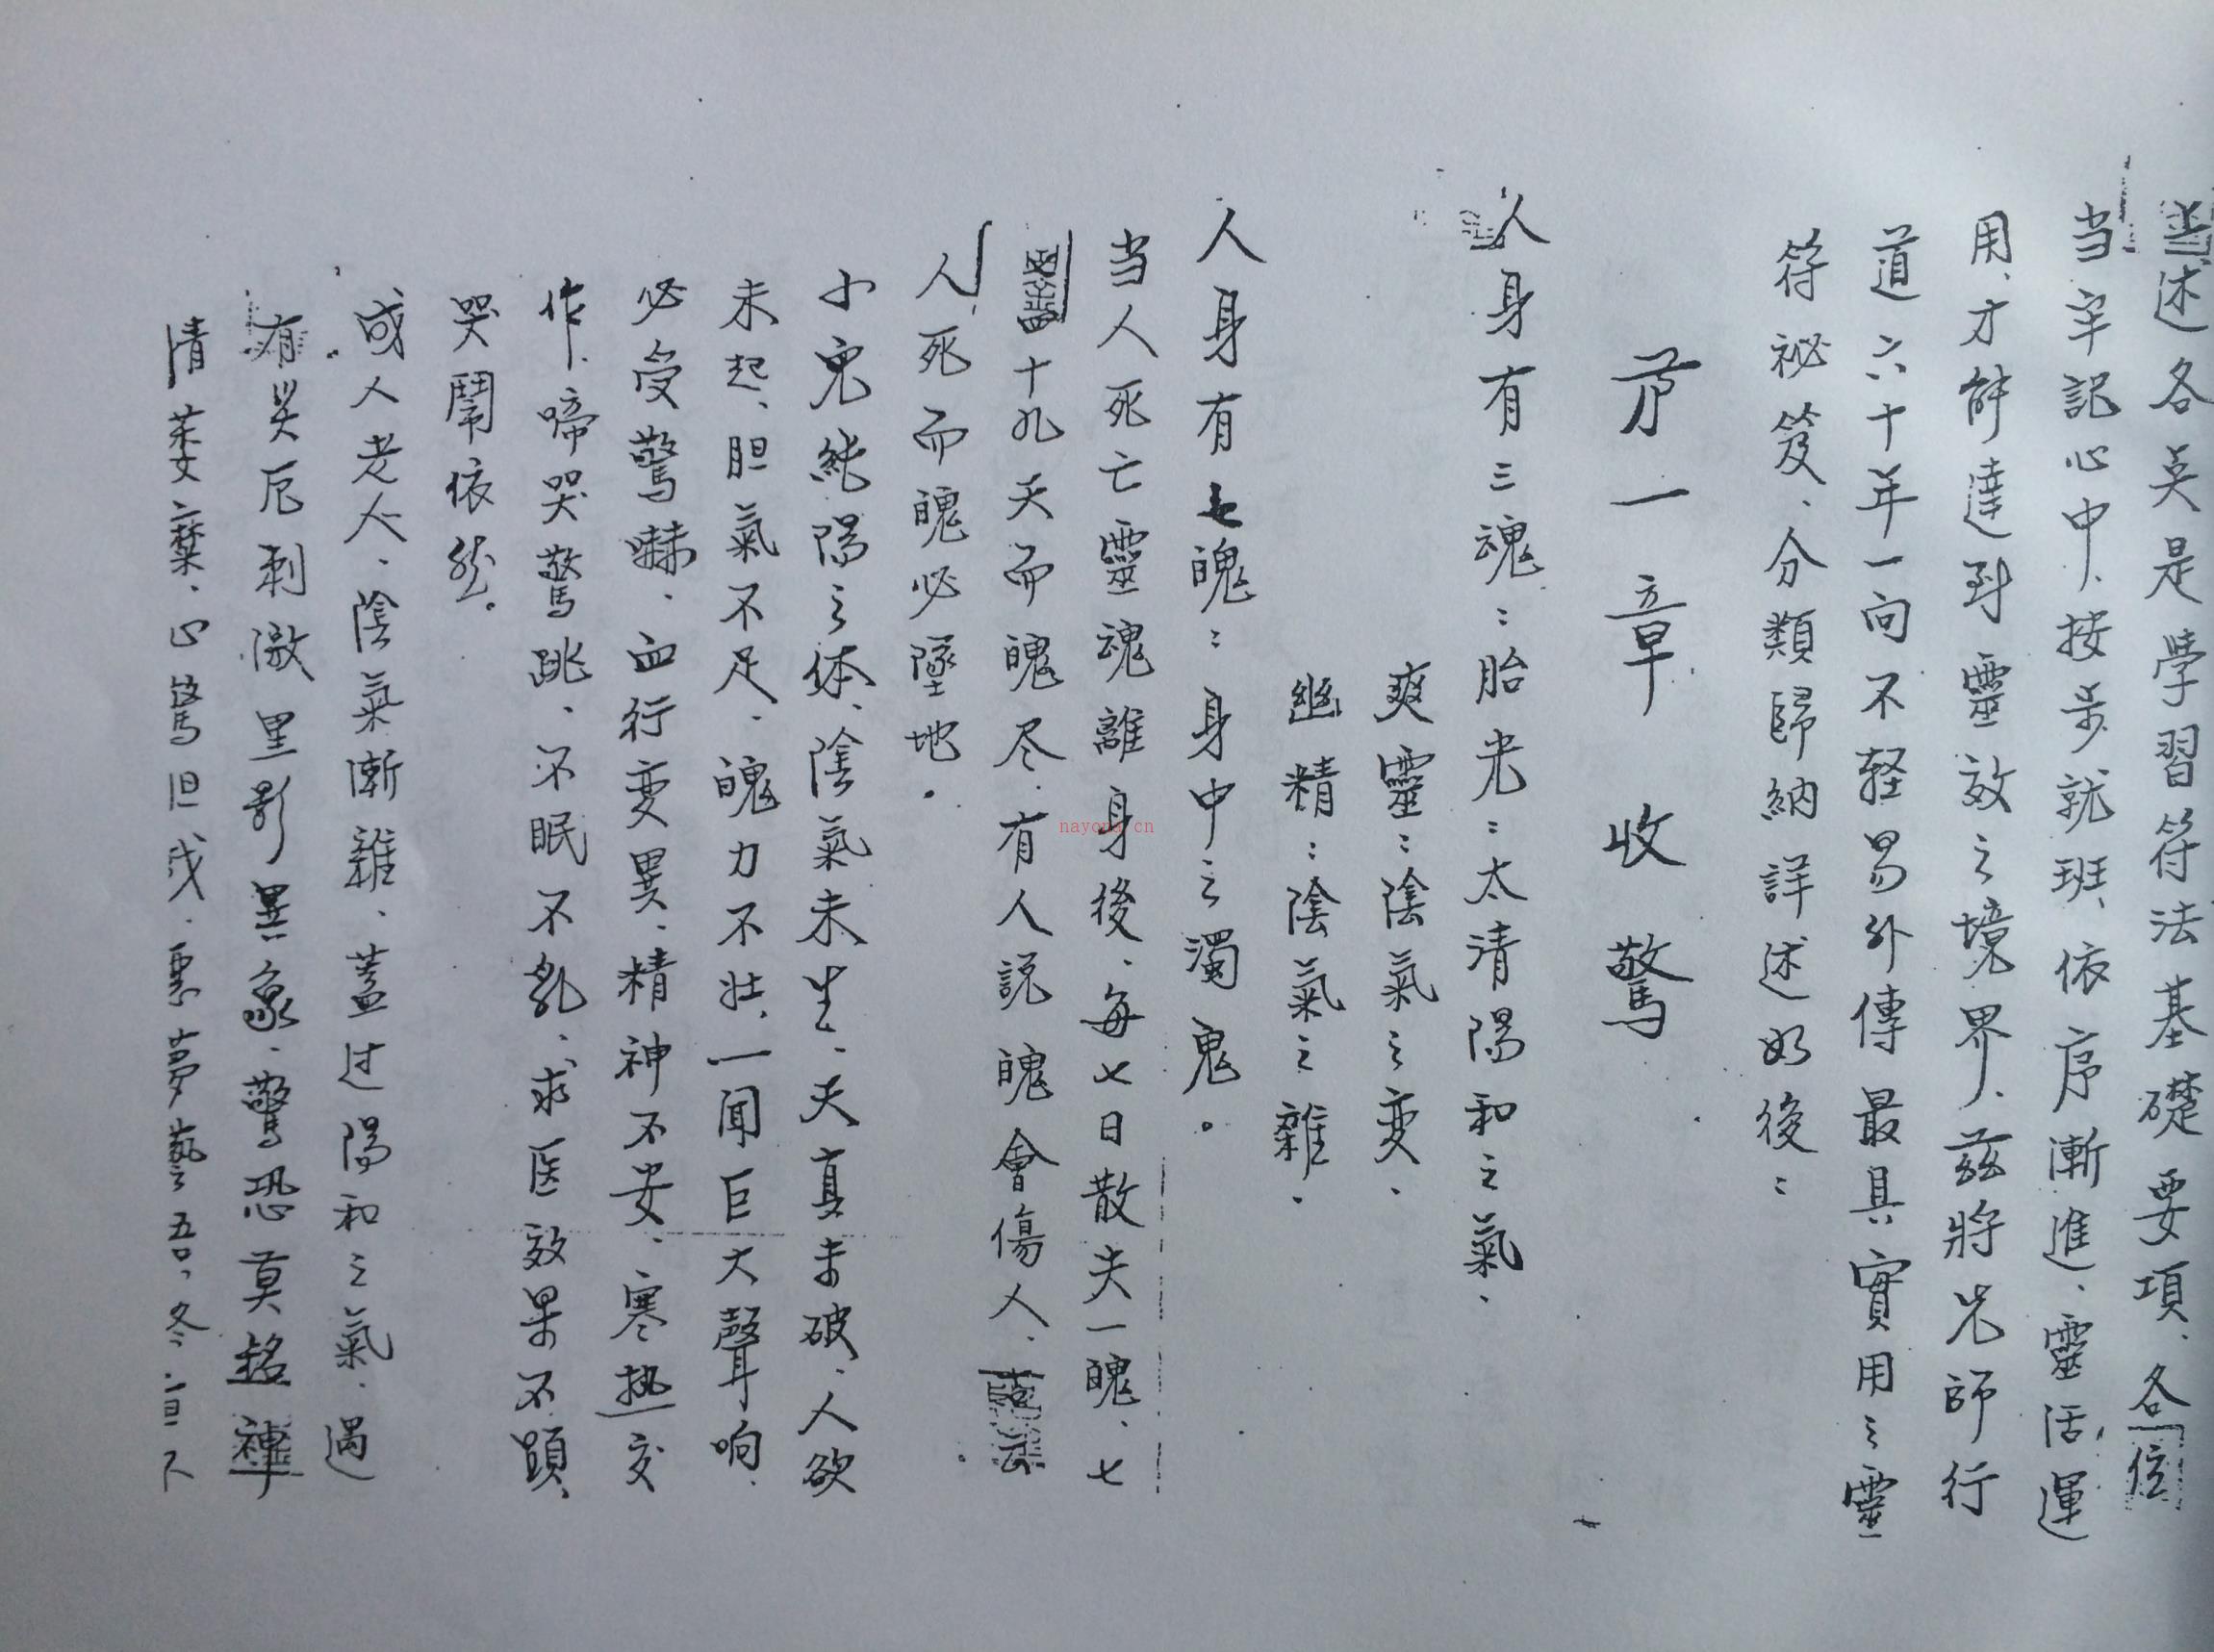 述各英是學習符法基礎要項、各位
当牢記心中、按步就班、依序漸進、靈活運
用、才能達到靈效之境界、茲將光師行
道六十年一向不轻易外傳最具實用之靈
符祕笈、分類歸納詳述如後：
苐一章 收驚
人身有三魂：胎光：太清陽和之氣、
爽靈：陰氣之变、
幽精：陰氣之雜、
人身有七魄：身中之濁鬼。
当人死亡靈魂離身後、每七日散失一魄、七
七四十九天而魄尽、有人説魄會傷人、
人死而魄必墜地。
小兒純陽之体、陰氣未生、天真未破、人欲
未起、胆氣不足、魄力不壮、一聞巨大聲响、
必受驚嚇、血行变異、精神不安、寒热交
作、啼哭驚跳、不眠不乳、求医效果不顕、
哭鬧依然。
成人老人、陰氣漸雜、蓋过陽和之氣、遇
有哭厄刺激、里影異象、驚恐莫銘、神
情萎糜、心驚胆戏、惡夢
nayona.cn